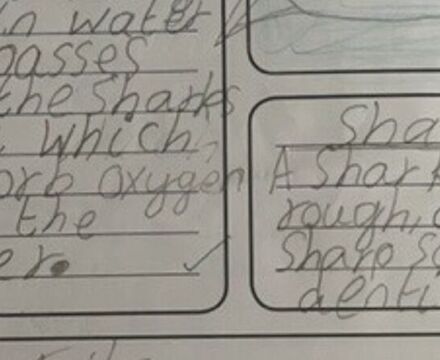 in water
passes
the Sharks
which,
orb oxygen
the
er.
Sha
A Shar
rough,
Sharp sc
denti